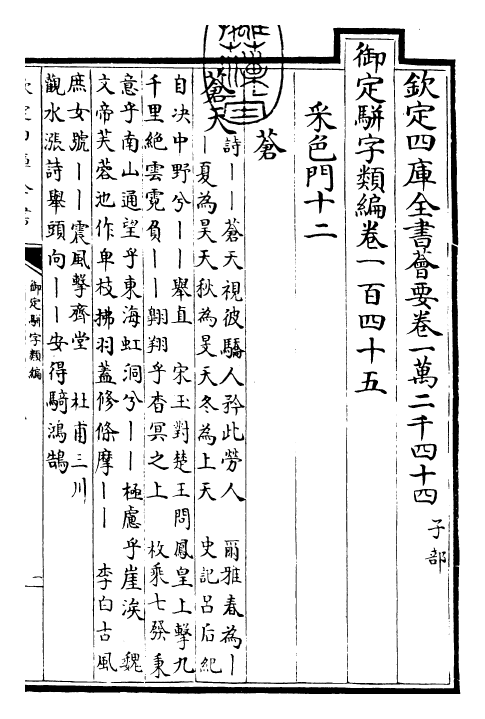 欽定四庫全書薈要卷一萬二千四十四 子部
御定駢字類編卷一百四十五
采色門十二
蒼
蒼天 詩丨丨蒼天視彼驕人矜此勞人 爾雅春為丨
丨夏為昊天秋為旻天冬為上天 史記呂后紀
自决中野兮丨丨舉直 宋玉對楚王問鳳皇上擊九
千里絶雲霓負丨丨翺翔乎杳冥之上 枚乘七發秉
意乎南山通望乎東海虹洞兮丨丨極慮乎崖涘 魏
文帝芙蓉池作卑枝拂羽蓋修條摩丨丨 李白古風
庶女號丨丨震風擊齊堂 杜甫三川
觀水漲詩舉頭向丨丨安得騎鴻鵠
御定駢字類編
一